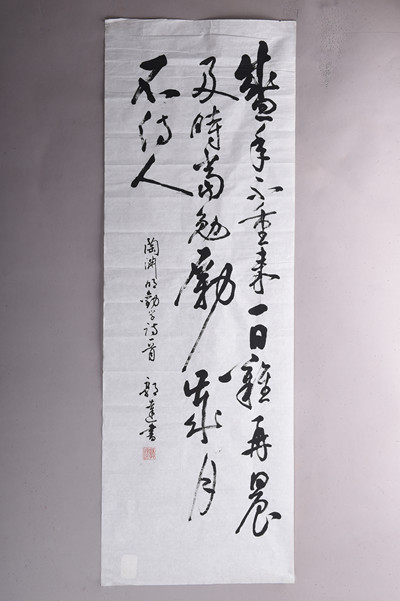 盛年不重来一日难再晨
及時當勉励歲月
不待人
陶渊明勸学诗一首
郭達書